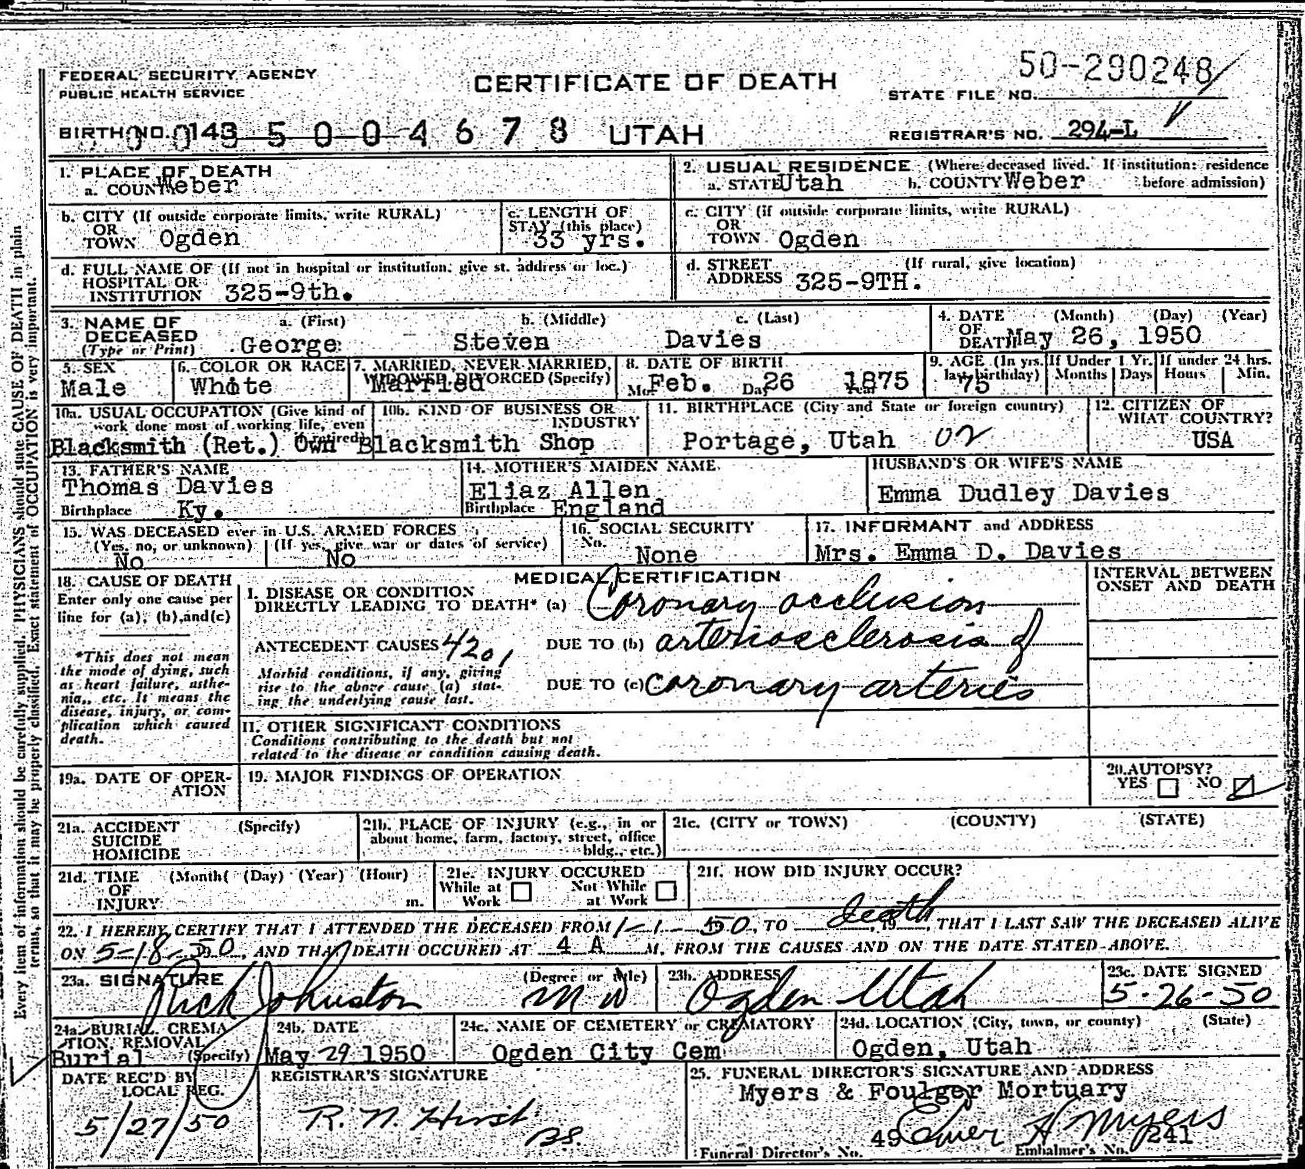 50-290248
FEDERAL SECURITY AGENCY
PUBLIC HEALTH SERVICE
CERTIFICATE OF DEATH
STATE FILE NO.
BIRTH NO. 0143 5 0 0 4 6 7 8 UTAH
REGISTRAR'S NO. 294-L
1. PLACE OF DEATH
a. COUNTY Weber
2. USUAL RESIDENCE (Where deceased lived. If institution: residence before admission)
a. STATE Utah b. COUNTY Weber
b. CITY (If outside corporate limits, write RURAL)
OR
TOWN Ogden
c. LENGTH OF
STAY (this place)
33 yrs.
c. CITY (if outside corporate limits, write RURAL)
OR
TOWN Ogden
d. FULL NAME OF (If not in hospital or institution, give st. address or loc.)
HOSPITAL OR
INSTITUTION 325-9th.
d. STREET (If rural, give location)
ADDRESS 325-9TH.
3. NAME OF DECEASED
(Type or Print)
a. (First) b. (Middle) c. (Last)
George Steven Davies
4. DATE OF DEATH (Month) (Day) (Year)
May 26, 1950
5. SEX
Male
6. COLOR OR RACE
White
7. MARRIED, NEVER MARRIED,
WIDOWED DIVORCED (Specify)
Married
8. DATE OF BIRTH
Mo. Feb. Day 26 Year 1875
9. AGE (In yrs. last birthday) If Under 1 Yr. If under 24 hrs.
75 Months Days Hours Min.
10a. USUAL OCCUPATION (Give kind of
work done most of working life, even
if retired)
Blacksmith (Ret.)
10b. KIND OF BUSINESS OR
INDUSTRY
Own Blacksmith Shop
11. BIRTHPLACE (City and State or foreign country)
Portage, Utah 02
12. CITIZEN OF
WHAT COUNTRY?
USA
13. FATHER'S NAME
Thomas Davies
Birthplace Ky.
14. MOTHER'S MAIDEN NAME
Eliaz Allen
Birthplace England
HUSBAND'S OR WIFE'S NAME
Emma Dudley Davies
15. WAS DECEASED ever in U.S. ARMED FORCES
(Yes, no, or unknown) (If yes, give war or dates of service)
No No
16. SOCIAL SECURITY
No. None
17. INFORMANT and ADDRESS
Mrs. Emma D. Davies
18. CAUSE OF DEATH
Enter only one cause per
line for (a), (b), and (c)
*This does not mean
the mode of dying, such
as heart failure, asthe-
nia, etc. It means the
disease, injury, or com-
plication which caused
death.
MEDICAL CERTIFICATION
INTERVAL BETWEEN
ONSET AND DEATH
I. DISEASE OR CONDITION
DIRECTLY LEADING TO DEATH* (a) Coronary occlusion
ANTECEDENT CAUSES 4201 DUE TO (b) arteriosclerosis of
Morbid conditions, if any, giving
rise to the above cause (a) stat-
ing the underlying cause last.
DUE TO (c) coronary arteries
11. OTHER SIGNIFICANT CONDITIONS
Conditions contributing to the death but not
related to the disease or condition causing death.
19a. DATE OF OPER-
ATION
19. MAJOR FINDINGS OF OPERATION
20. AUTOPSY?
YES NO
21a. ACCIDENT (Specify)
SUICIDE
HOMICIDE
21b. PLACE OF INJURY (e.g., in or
about home, farm, factory, street, office
bldg., etc.)
21c. (CITY or TOWN) (COUNTY) (STATE)
21d. TIME (Month( (Day) (Year) (Hour)
OF
INJURY m.
21e. INJURY OCCURED
While at Work Not While at Work
21f. HOW DID INJURY OCCUR?
22. I HEREBY CERTIFY THAT I ATTENDED THE DECEASED FROM 1-1-50, TO death, 19 , THAT I LAST SAW THE DECEASED ALIVE
ON 5-18-50, AND THAT DEATH OCCURED AT 4 A M, FROM THE CAUSES AND ON THE DATE STATED ABOVE.
23a. SIGNATURE (Degree or title)
Rich Johnston M D
23b. ADDRESS
Ogden Utah
23c. DATE SIGNED
5-26-50
24a. BURIAL, CREMA
TION, REMOVAL
Burial (Specify)
24b. DATE
May 29 1950
24c. NAME OF CEMETERY or CREMATORY
Ogden City Cem
24d. LOCATION (City, town, or county) (State)
Ogden, Utah
DATE REC'D BY
LOCAL REG.
5/27/50
REGISTRAR'S SIGNATURE
R. N. Hirst
25. FUNERAL DIRECTOR'S SIGNATURE AND ADDRESS
Myers & Foulger Mortuary
49 Elmer A Myers 241
Funeral Director's No. Embalmer's No.
Every item of information should be carefully supplied. PHYSICIANS should state CAUSE OF DEATH in plain
terms, so that it may be properly classified. Exact statement of OCCUPATION is very important.